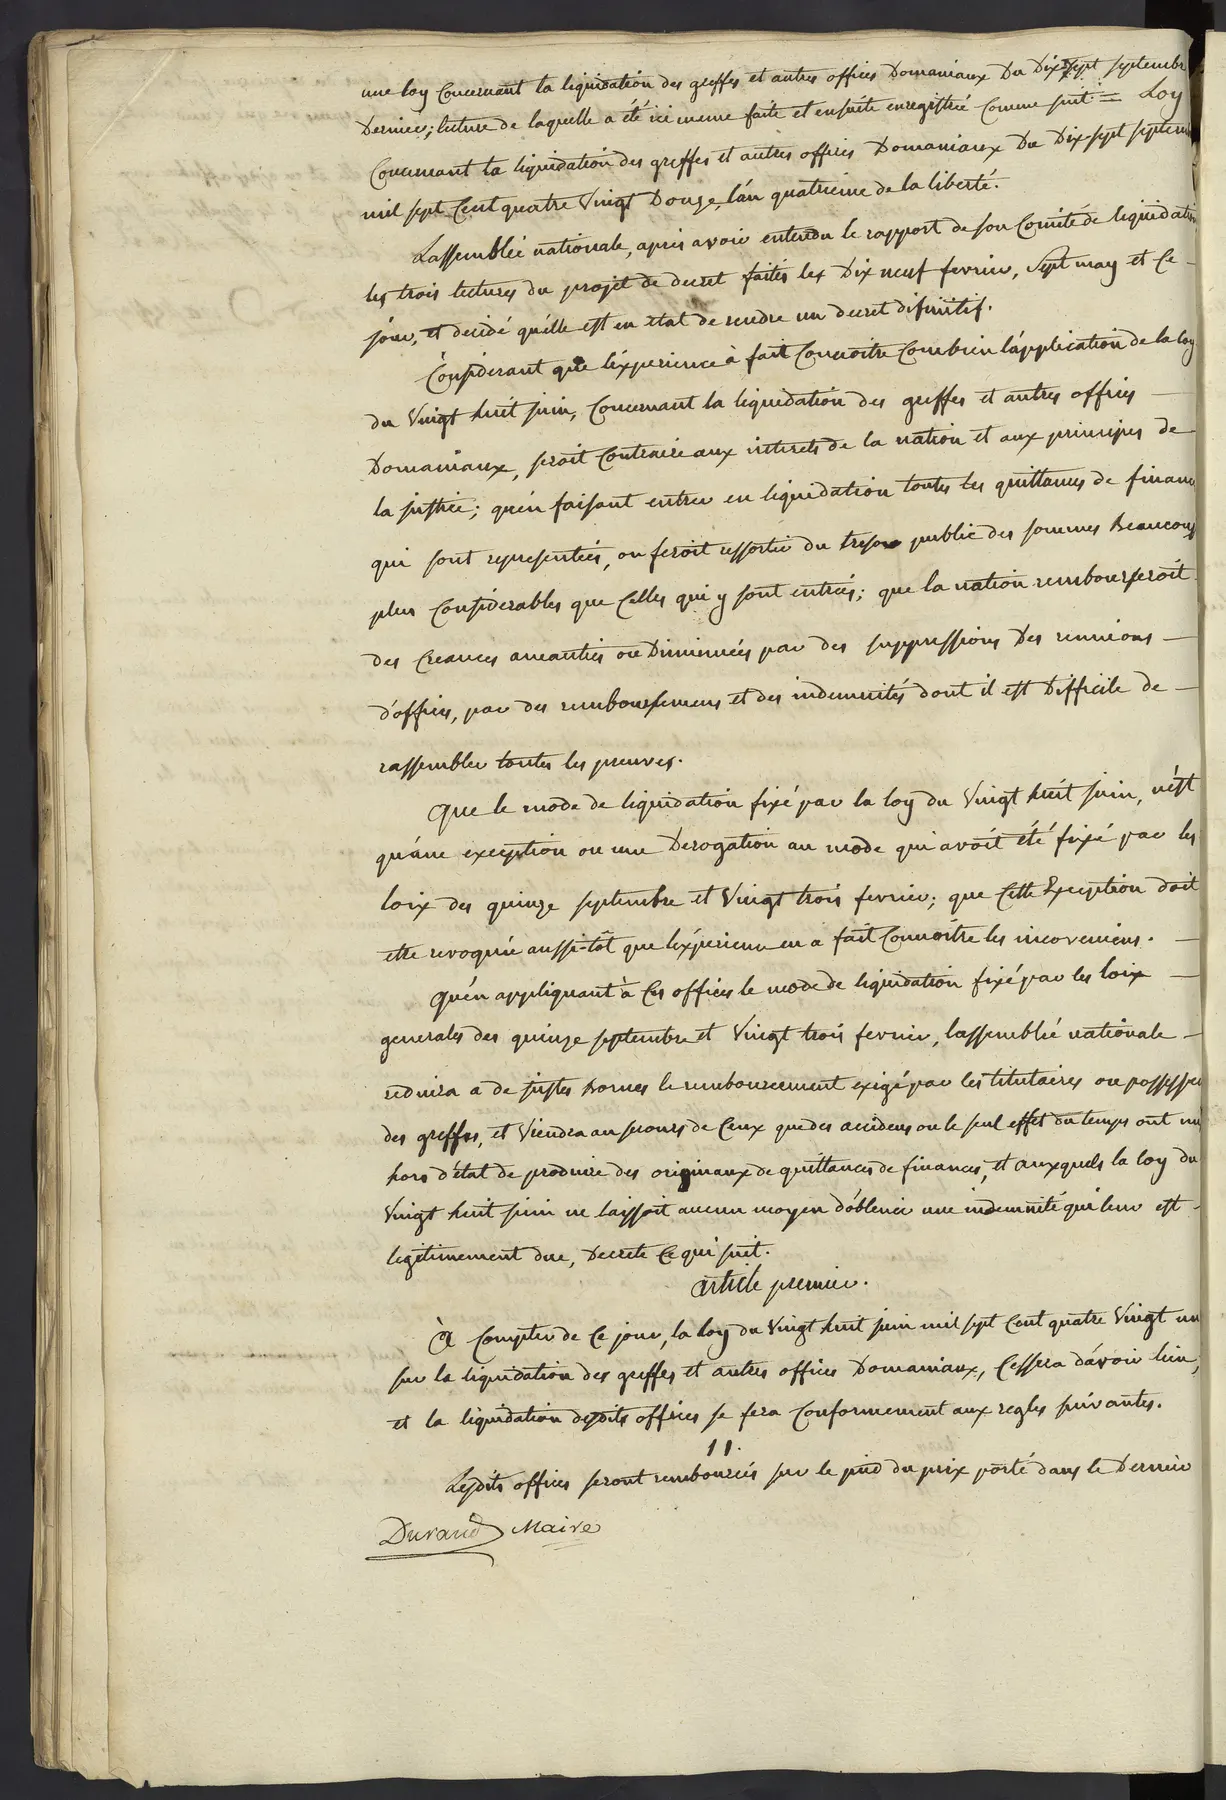 une loy Concernant la liquidation des greffes et autres offices Domaniaux Du Dix sept septembre
Dernier; lecture de laquelle a été ici meme faite et ensuite enregistrée Comme suit = Loy
Concernant la liquidation des greffes et autres offices Domaniaux Du Dix-sept septem
mil sept Cent quatre Vingt Douze, l'an quatrieme de la liberté.
L'assemblée nationale, aprés avoir entendu le rapport de son Comité de liquidation
les trois lectures du projet de decret faites les Dix neuf fevrier, Sept may et Ce -
jour, et decidé qu'elle est en etat de rendre un decret difinitif.
Considerant que l'experience à fait Connoitre Combien l'application de la loy
du Vingt huit juin, Concernant la liquidation des greffes et autres offices —
Domaniaux, seroit Contraire aux interets de la nation et aux principes de
la justice; qu'en faisant entrer en liquidation toutes les quittances de financ
qui sont representées, on feroit ressortir du tresor public des sommes Beaucoup
plus Considerables que Celles qui y sont entrées; que la nation rembourseroit
des Creances aneanties ou Diminuées par des suppressions Des reunions —
d'offices, par des remboursemens et des indemnités dont il est Difficile de —
rassembler toutes les preuves.
Que le mode de liquidation fixé par la loy du Vingt huit juin, n'est
qu'une exception ou une Derogation au mode qui avoit été fixé par les
loix des quinze septembre et Vingt trois fevrier; que Cette Exception doit
etre revoquée aussi-tôt que l'experience en a fait Connoitre les inconveniens. —
Qu'en appliquant à Ces offices le mode de liquidation fixé par les loix —
generales des quinze septembre et Vingt trois fevrier, l'assemblée nationale —
reduira a de justes bornes le remboursement exigé par les titutaires ou possesseu
des greffes, et Viendra au secours de Ceux que des accidens ou le seul effet du temps ont mis
hors d'état de produire des originaux de quittances de finances, et auxquels la loy du
Vingt huit juin ne laissoit aucun moyen d'obtenir une indemnité qui leur est -
legitimement due, Decrete Ce qui suit.
article premier.
À Compter de Ce jour, la loy du Vingt huit juin mil sept Cent quatre Vingt un
sur la liquidation des greffes et autres offices Domaniaux, Cessera d'avoir lieu,
et la liquidation desdits offices se fera Conformement aux regles suivantes.
11.
Lesdits offices seront remboursés sur le pied du prix porté dans le Dernier
Durand Maire